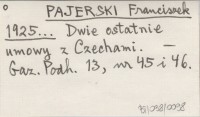 PAJERSKI Franciszek
1925... Dwie ostatnie
umowy z Czechami. —
Gaz. Podh. 13, nr 45 i 46.